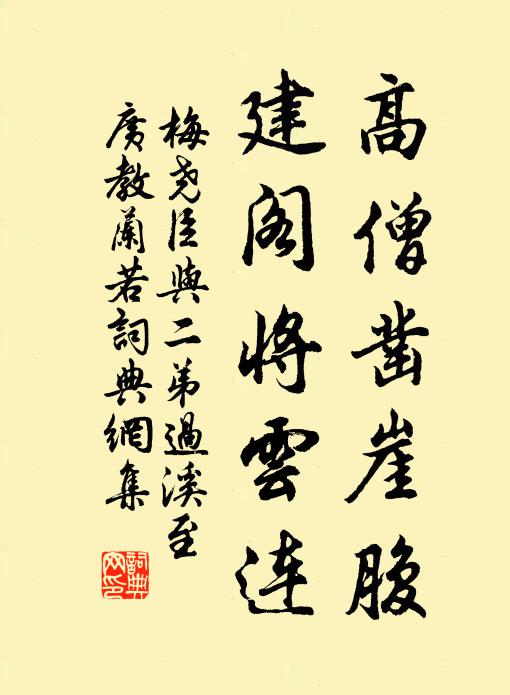 高僧凿崖腹
建阁将雲连
梅尧臣與二弟過溪至
廣教蘭若詞典網集
詞典網印